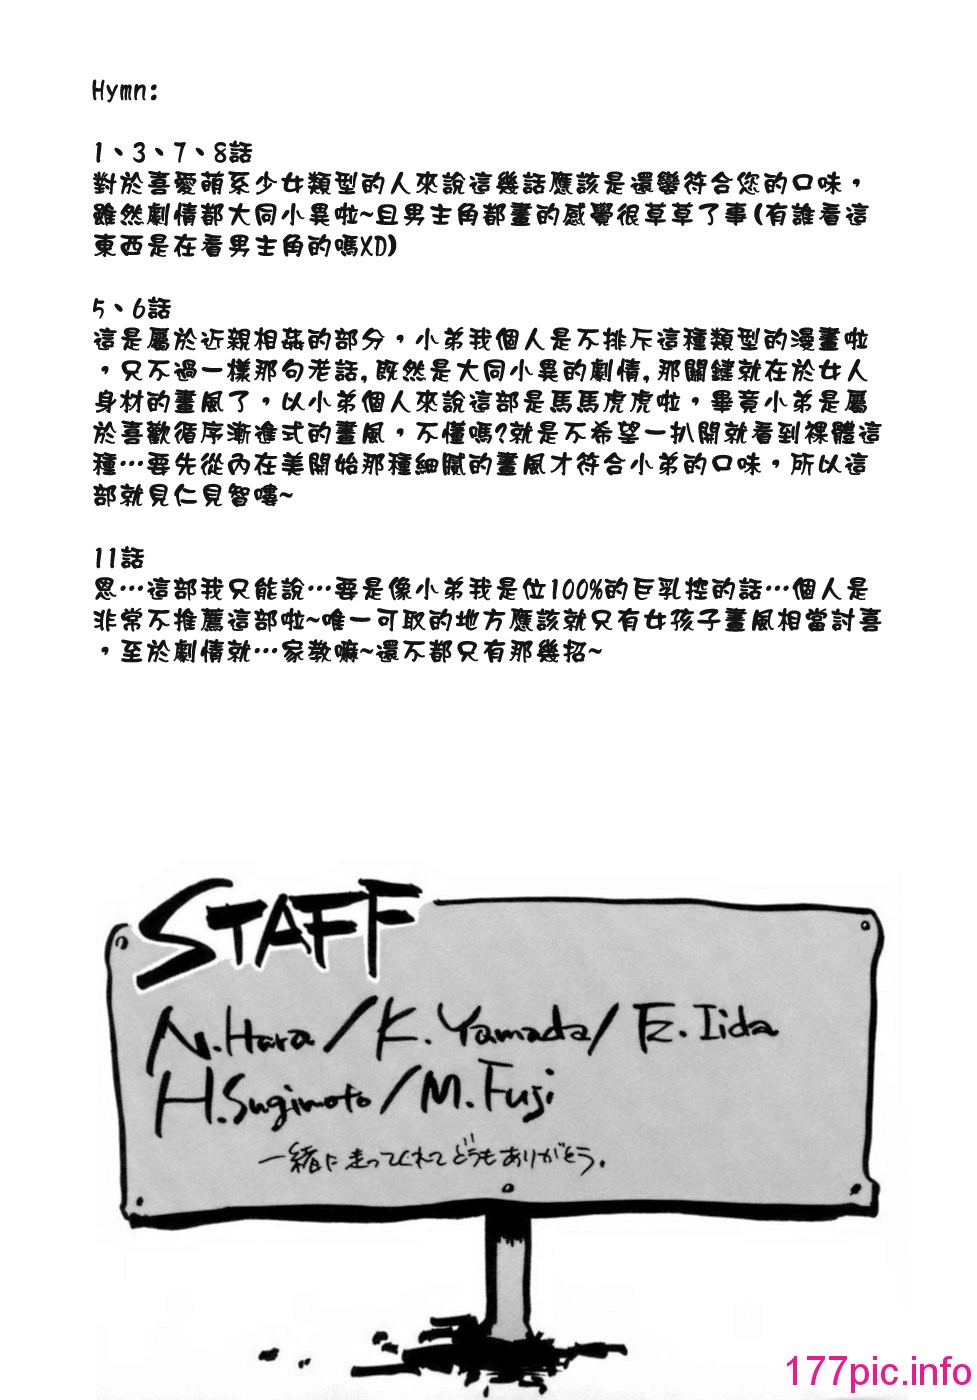 Hymn:
1、3、7、8話
對於喜愛萌系少女類型的人來說這幾話應該是還蠻符合您的口味，
雖然劇情都大同小異啦~且男主角都畫的感覺很草草了事(有誰看這
東西是在看男主角的嗎XD)
5、6話
這是屬於近親相姦的部分，小弟我個人是不排斥這種類型的漫畫啦
，只不過一樣那句老話,既然是大同小異的劇情,那關鍵就在於女人
身材的畫風了，以小弟個人來說這部是馬馬虎虎啦，畢竟小弟是屬
於喜歡循序漸進式的畫風，不懂嗎?就是不希望一扒開就看到裸體這
種…要先從內在美開始那種細膩的畫風才符合小弟的口味，所以這
部就見仁見智嘍~
11話
恩…這部我只能說…要是像小弟我是位100%的巨乳控的話…個人是
非常不推薦這部啦~唯一可取的地方應該就只有女孩子畫風相當討喜
，至於劇情就…家教嘛~還不都只有那幾招~
STAFF
N.Hara/K.Yamada/E.Iida
H.Sugimoto/M.Fuji
一緒に走ってくれてどうもありがとう.
177pic.info